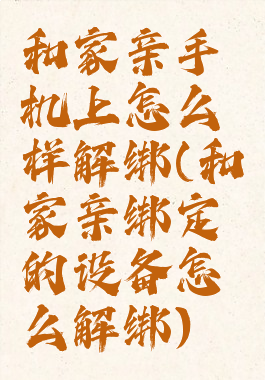 和家亲手
机上怎么
样解绑(和
家亲绑定
的设备怎
么解绑)